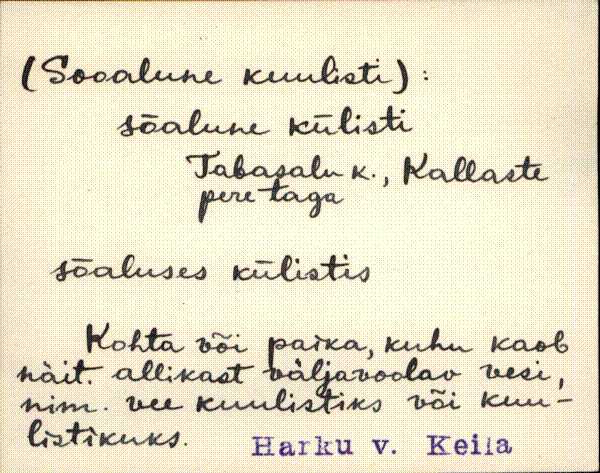 (Sooalune kuulisti):
sōalune kūlisti
Tabasalu k., Kallaste
pere taga
sōaluses kūlistis
Kohta või paika, kuhu kaob
näit. allikast väljavoolav vesi,
nim. vee kuulistiks või kuu-
listikuks.
Harku v. Keila